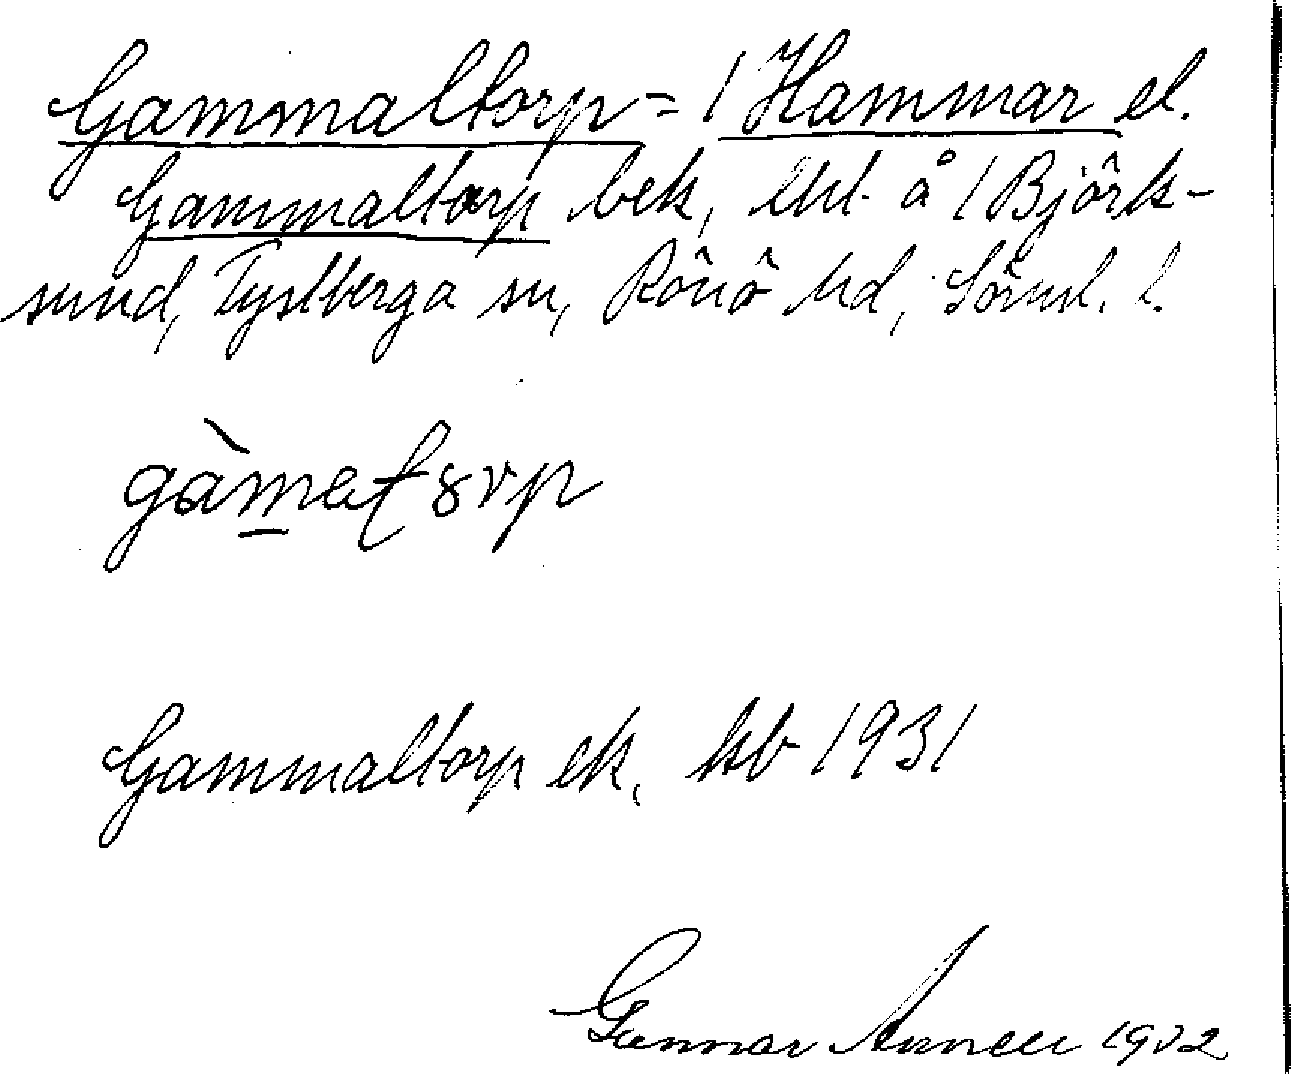 Gammaltorp = / Hammar el.
Gammaltorp bek, lht å / Björk-
sund, Tystberga sn, Rönö hd, Sörml. l.
gàmałtorp
Gammaltorp ek, kb 1931
Gunnar Annell 1932